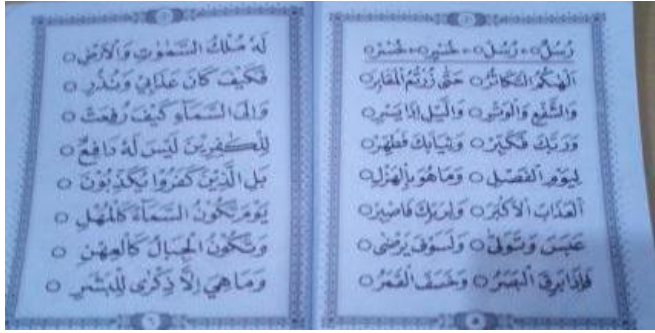 رُسُلٌ ○ رُسُلٌ ○ خُسْرٍ ○ خُسْرٍ ○
اَلْهٰىكُمُ التَّكَاثُرُ ○ حَتّٰى زُرْتُمُ الْمَقَابِرَ ○
وَالشَّفْعِ وَالْوَتْرِ ○ وَالَّيْلِ اِذَا يَسْرِ ○
وَرَبَّكَ فَكَبِّرْ ○ وَثِيَابَكَ فَطَهِّرْ ○
لِيَوْمِ الْفَصْلِ ○ وَمَا هُوَ بِالْهَزْلِ ○
الْعَذَابَ الْاَكْبَرَ ○ وَلِرَبِّكَ فَاصْبِرْ ○
عَبَسَ وَتَوَلّٰى ○ وَلَسَوْفَ يَرْضٰى ○
فَاِذَا بَرِقَ الْبَصَرُ ○ وَخَسَفَ الْقَمَرُ ○
لَهٗ مُلْكُ السَّمٰوٰتِ وَالْاَرْضِ ○
فَكَيْفَ كَانَ عَذَابِيْ وَنُذُرِ ○
وَاِلَى السَّمَاۤءِ كَيْفَ رُفِعَتْ ○
لِلْكٰفِرِيْنَ لَيْسَ لَهٗ دَافِعٌ ○
بَلِ الَّذِيْنَ كَفَرُوْا يُكَذِّبُوْنَ ○
يَوْمَ تَكُوْنُ السَّمَاۤءُ كَالْمُهْلِ ○
وَتَكُوْنُ الْجِبَالُ كَالْعِهْنِ ○
وَمَا هِيَ اِلَّا ذِكْرٰى لِلْبَشَرِ ○